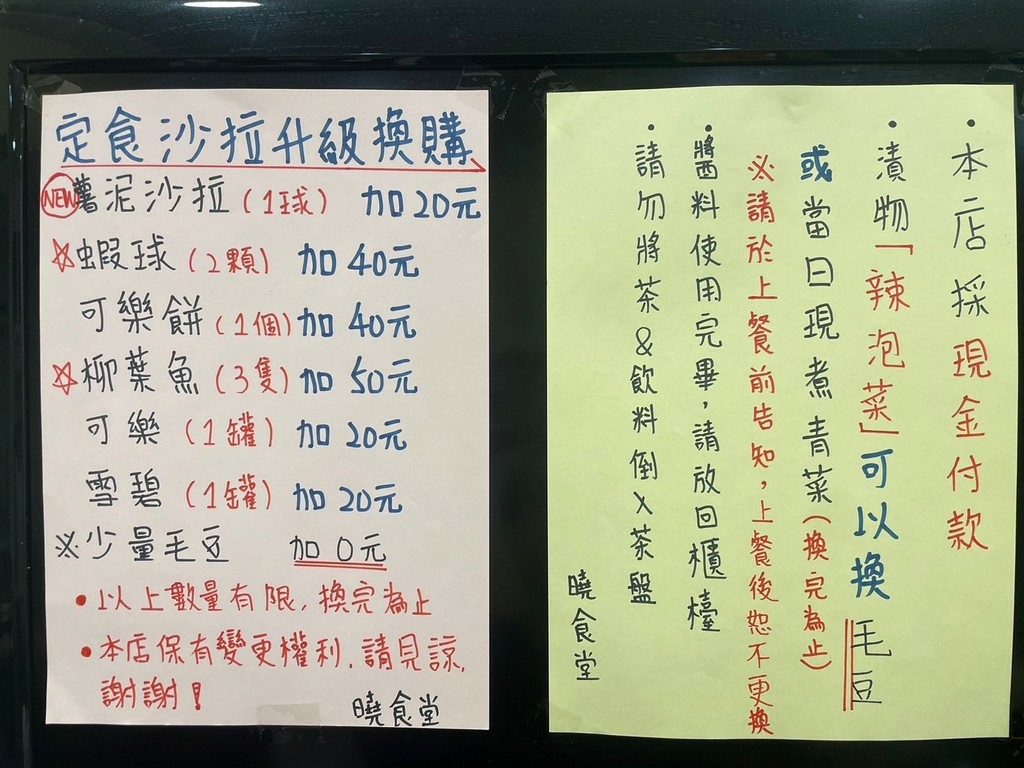 定食沙拉升級換購
NEW薯泥沙拉(1球) 加20元
☆蝦球(2顆) 加40元
可樂餅(1個)加40元
☆柳葉魚(3隻)加50元
可樂(1罐) 加20元
雪碧(1罐) 加20元
※少量毛豆 加0元
•以上數量有限,換完為止
•本店保有變更權利,請見諒,
謝謝!
曉食堂
•本店採現金付款
•漬物「辣泡菜」可以換毛豆
或當日現煮青菜(換完為止)
※請於上餐前告知,上餐後恕不更換
•醬料使用完畢,請放回櫃檯
•請勿將茶&飲料倒入茶盤
曉食堂